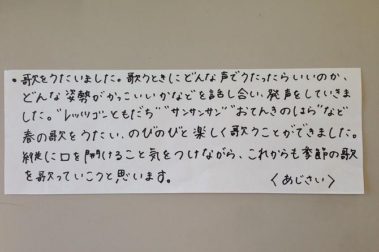 ・歌をうたいました。歌うときにどんな声でうたったらいいのか、
どんな姿勢がかっこいいかなどを話し合い、発声をしていきま
した。"レッツゴーともだち""サンサンサン""おてんきのはら"など
春の歌をうたい、のびのびと楽しく歌うことができました。
縦に口を開けること気をつけながら、これからも季節の歌
を歌っていこうと思います。　　　〈あじさい〉